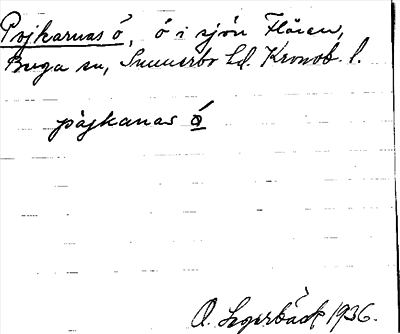 Pojkarnas ö, ö i sjön Flåren,
Bunga sn, Sunnerbo hd. Kronob. l.
påjkanas ö
O. Lagerbäck 1936.